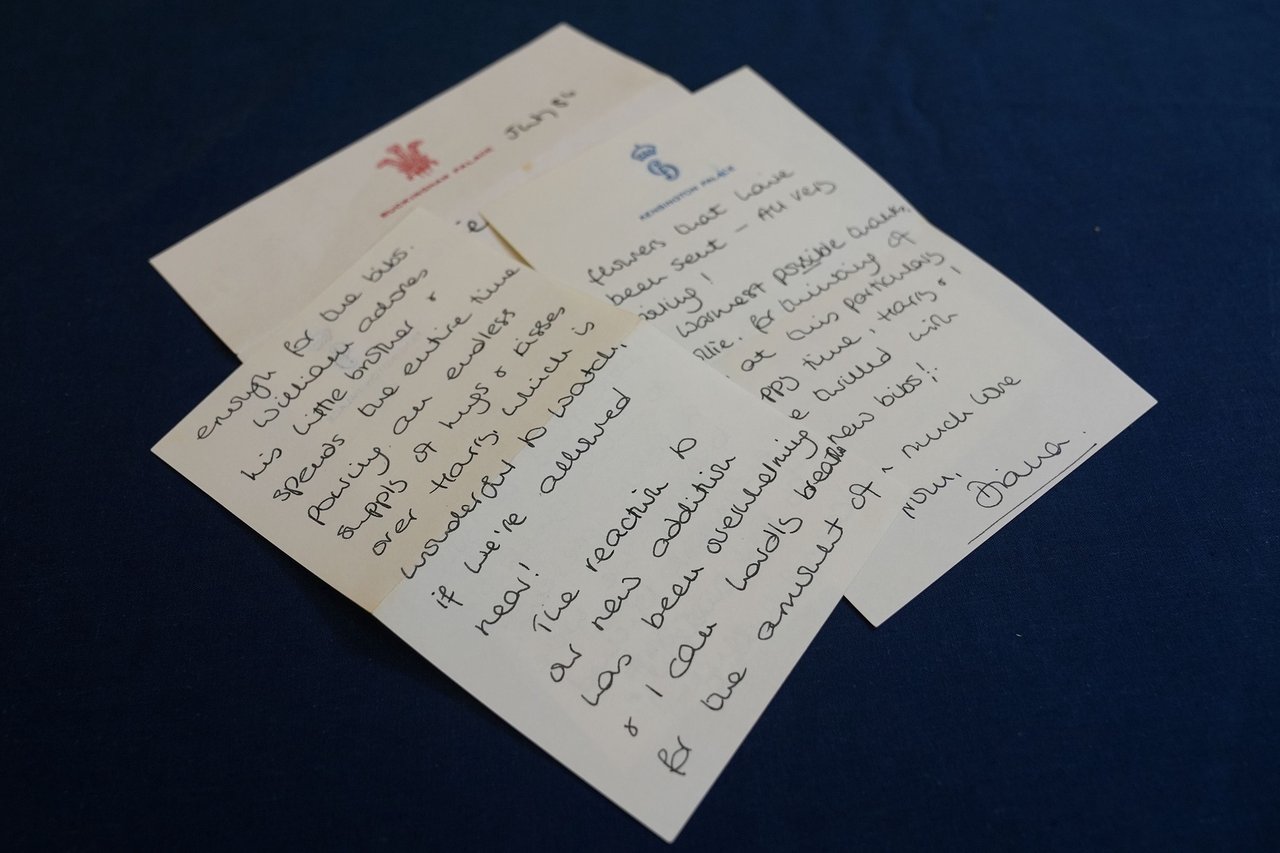 BUCKINGHAM PALACE
July 84
enough for the bibs.
William adores
his little brother &
spends the entire time
pouring an endless
supply of hugs & kisses
over Harry, which is
wonderful to watch,
if we're allowed
near!
The reaction to
our new addition
has been overwhelming
& I can hardly breath
for the amount of
KENSINGTON PALACE
flowers that have
been sent - All very
warmest possible thanks,
for thinking of
at this particularly
ppy time, Harry &
e thrilled with
new bibs!
much love
from,
Diana.